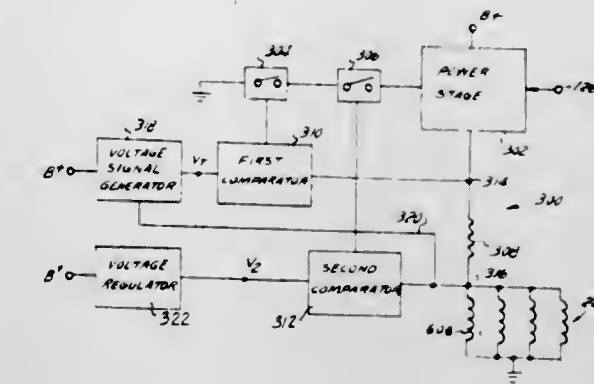 B+
304
306
POWER
STAGE
302
318
310
VOLTAGE
SIGNAL
GENERATOR
B+
V1
FIRST
COMPARATOR
314
300
320
308
316
B+
VOLTAGE
REGULATOR
322
V2
SECOND
COMPARATOR
312
606